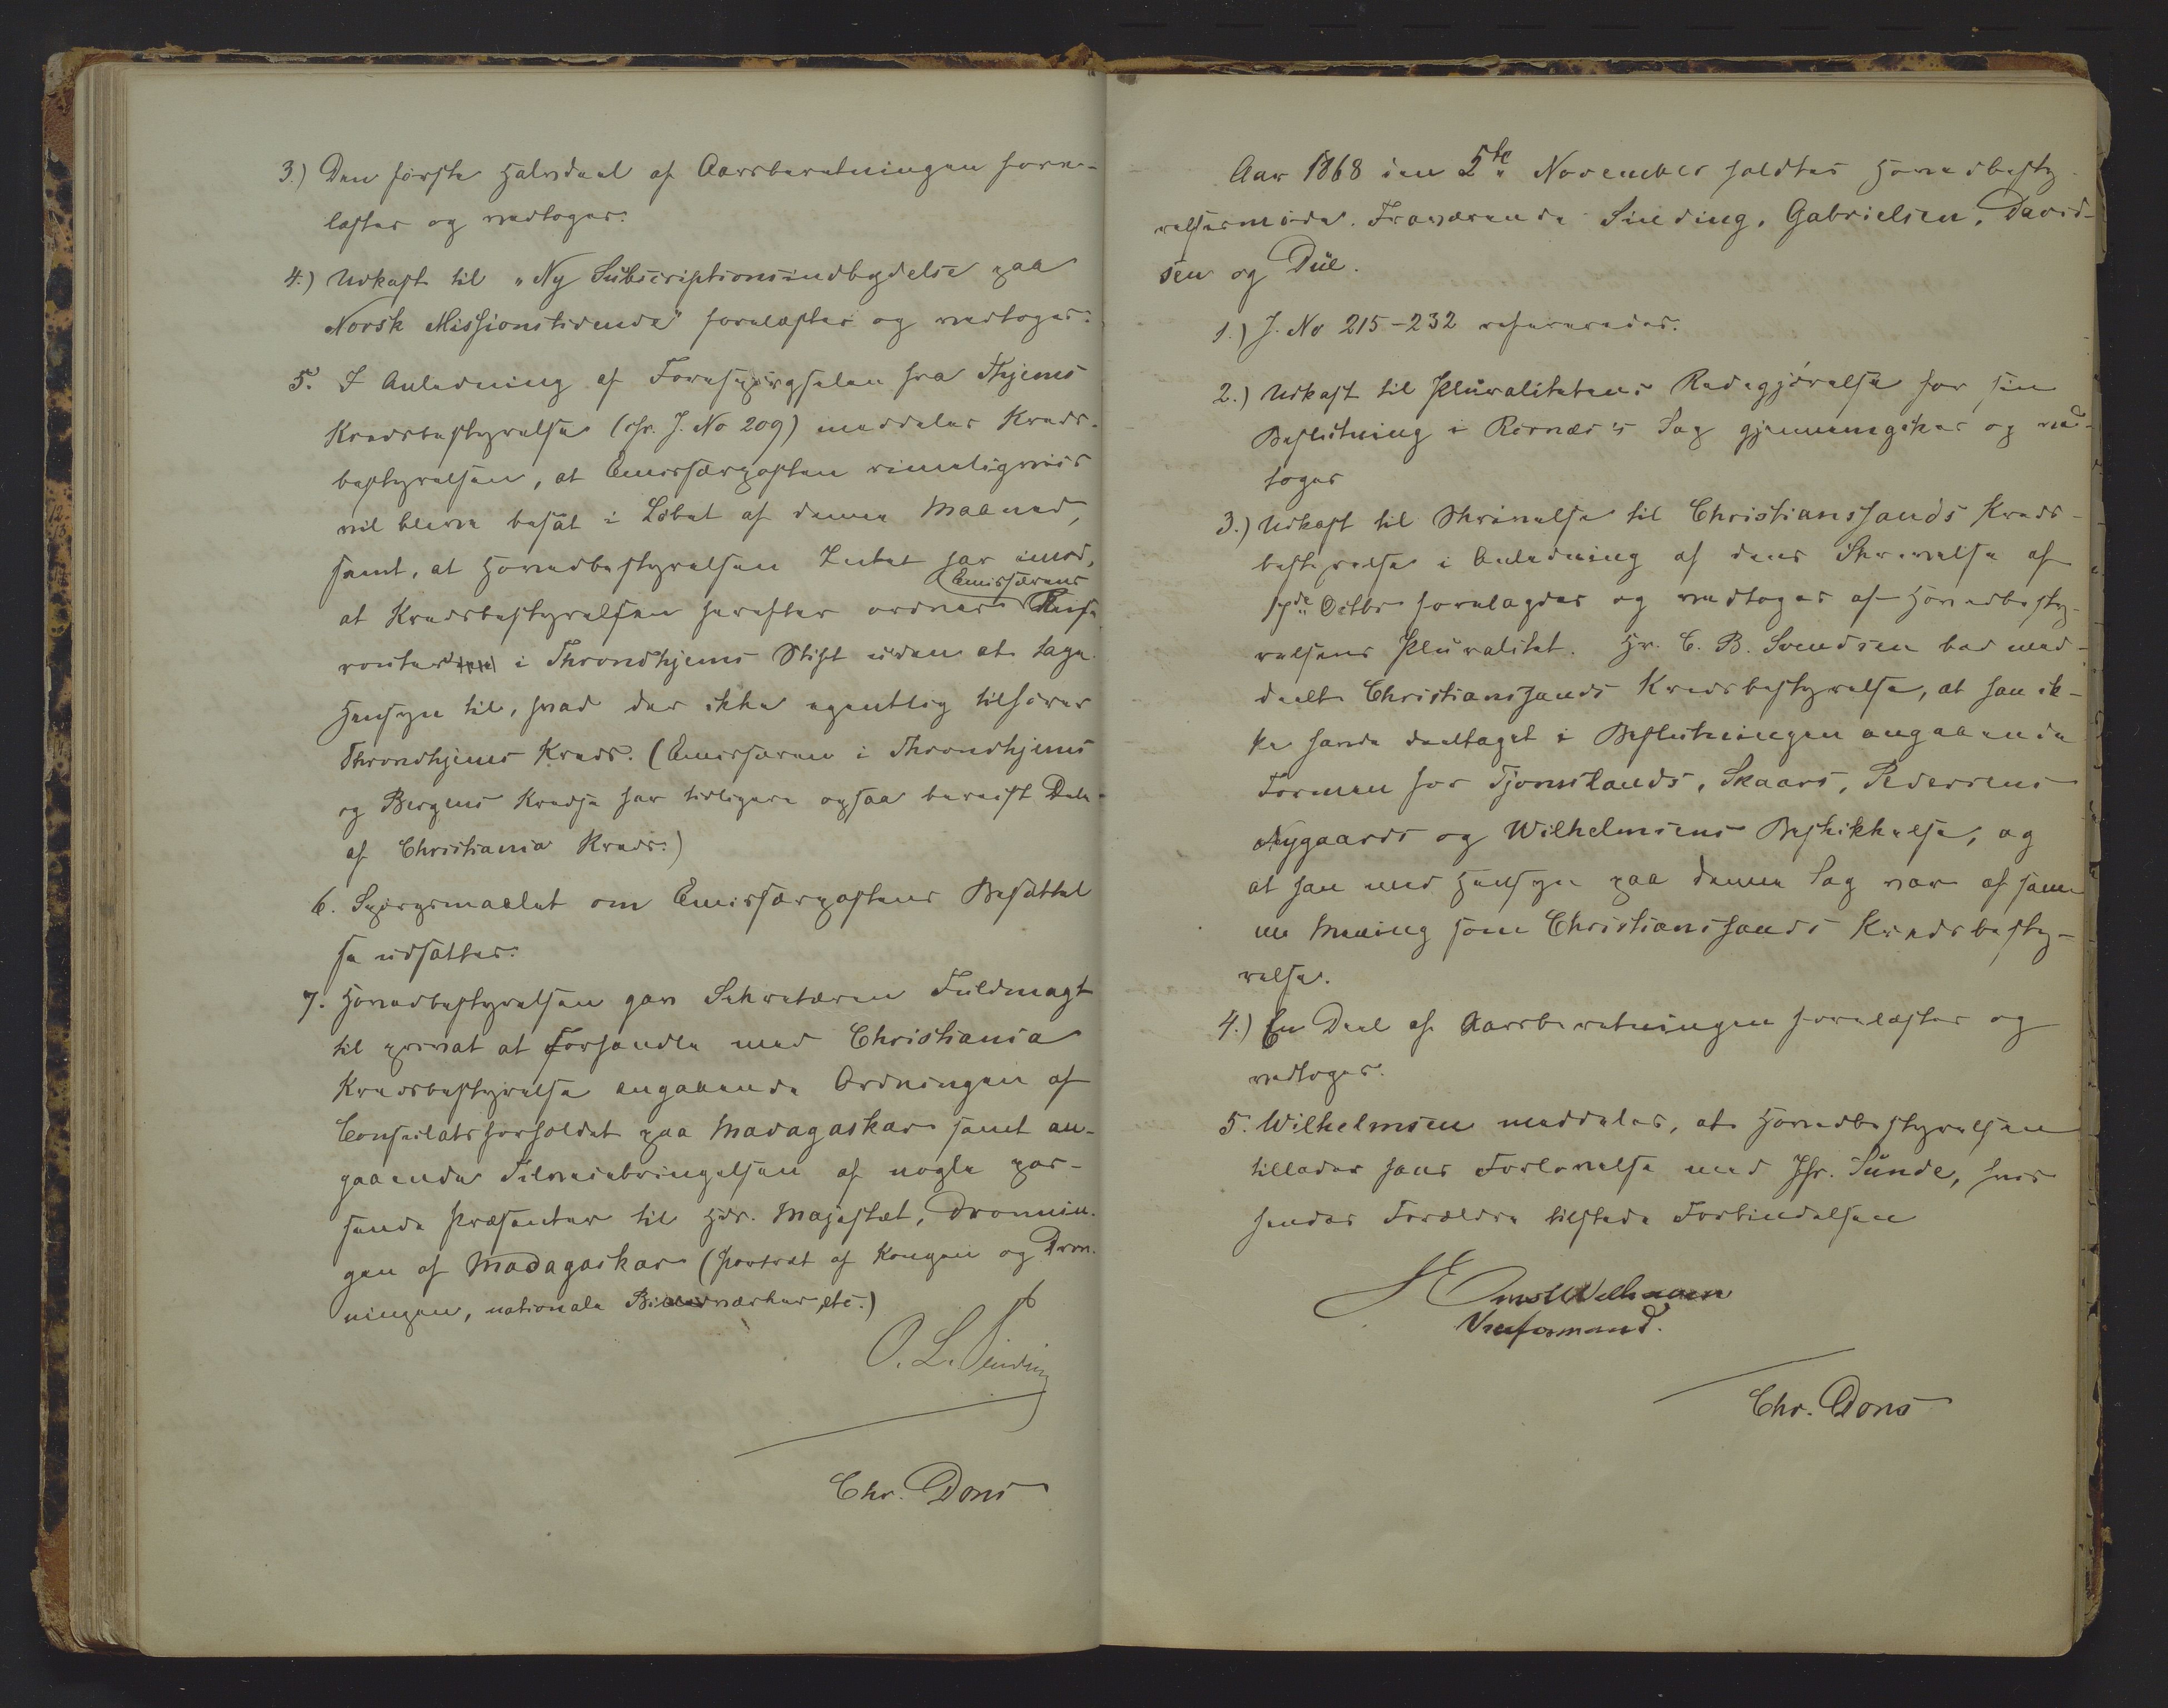 3.) Den første Halvdeel af Aarsberetningen fore-
læstes og vedtoges.
4.) Udkast til „Ny Subscriptionsindbydelse paa
Norsk Missionstidende" forelæstes og vedtoges.
5. I Anledning af Forespørgselen fra Thjems
Kredsbestyrelse (cfr. J. No 209) meddeles Kreds-
bestyrelsen, at Emissærposten rimeligviis
vil blive besat i Løbet af denne Maaned,
samt, at Hovedbestyrelsen Intet har imod,
at Kredsbestyrelsen herefter ordner Emissærens Reise-
router i Throndhjems Stift uden at tage
Hensyn til, hvad der ikke egentlig tilhører
Throndhjems Kreds. (Emissæren i Throndhjems
og Bergens Kredse har tidligere ogsaa bereist Dele
af Christiania Kreds.)
6. Spørgsmaalet om Emissærpostens Besættel
se udsattes.
7. Hovedbestyrelsen gav Sekretæren Fuldmagt
til privat at forhandle med Christiania
Kredsbestyrelse angaaende Ordningen af
Consulatsforholdet paa Madagaskar samt an-
gaaende Tilveiebringelsen af nogle pas-
sende Præsenter til Hds. Majestæt, Dronnin-
gen af Madagaskar (Portræt af Kongen og Dron-
ningen, nationale Billedværker, etc.)
O. L. Sinding
Chr. Dons
Aar 1868 den 5te November holdtes Hovedbesty-
relsesmøde. Fraværende Sinding, Gabrielsen, David-
sen og Due.
1.) J. No 215-232 refereredes.
2.) Udkast til Pluralitetens Redegjørelse for sin
Beslutning i Rosnæs's Sag gjennemgikes og ved-
toges
3.) Udkast til Skrivelse til Christianssands Kreds-
bestyrelse i Anledning af dens Skrivelse af
17de Octbr forelagdes og vedtoges af Hovedbesty-
relsens Pluralitet. Hr. C. B. Svendsen bad med-
deelt Christianssands Kredsbestyrelse, at han ik-
ke havde deeltaget i Beslutningen angaaende
Formen for Tjomslands, Skaars, Pedersens
Nygaards og Wilhelmsens Beskikkelse, og
at han med Hensyn paa denne Sag var af sam-
me Mening som Christianssands Kredsbesty-
relse.
4.) En Deel af Aarsberetningen forelæstes og
vedtoges.
5. Wilhelmsen meddeles, at Hovedbestyrelsen
tillader hans Forlovelse med Jfr. Sunde, hvis
hendes Forældre tilstede Forbindelsen
Viceformand.
Chr. Dons